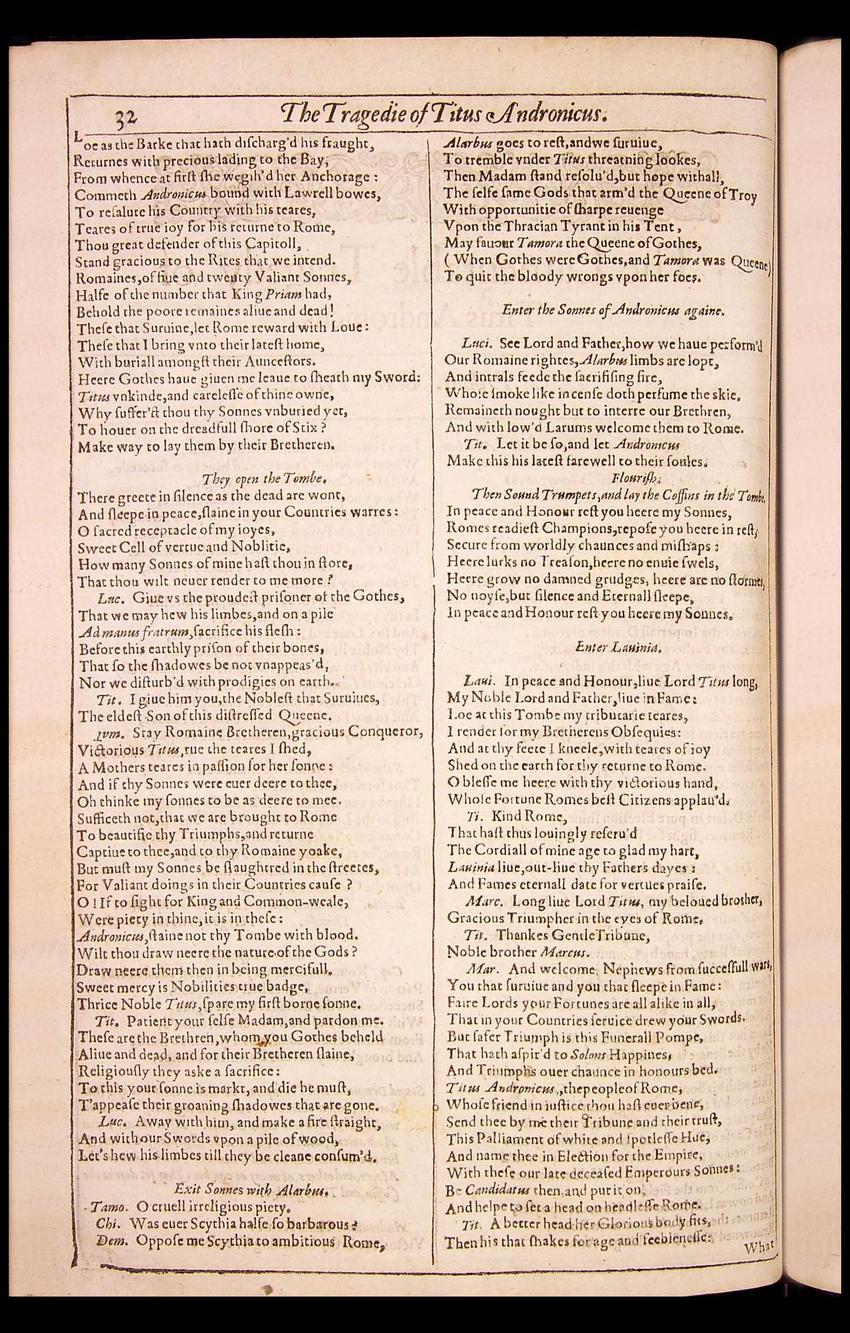 32
The Tragedie of Titus Andronicus.
Loe as the Barke that hath discharg'd his fraught,
Returnes with precious lading to the Bay,
From whence at first she wegih'd her Anchorage :
Commeth Andronicus bound with Lawrell bowes,
To resalute his Country with his teares,
Teares of true ioy for his returne to Rome,
Thou great defender of this Capitoll,
Stand gracious to the Rites that we intend.
Romaines, of fiue and twenty Valiant Sonnes,
Halfe of the number that King Priam had,
Behold the poore remaines aliue and dead!
These that Suruiue, let Rome reward with Loue:
These that I bring vnto their latest home,
With buriall amongst their Auncestors.
Heere Gothes haue giuen me leaue to sheath my Sword:
Titus vnkinde, and carelesse of thine owne,
Why suffer'st thou thy Sonnes vnburied yet,
To houer on the dreadfull shore of Stix ?
Make way to lay them by their Bretheren.
They open the Tombe.
There greete in silence as the dead are wont,
And sleepe in peace, slaine in your Countries warres :
O sacred receptacle of my ioyes,
Sweet Cell of vertue and Noblitie,
How many Sonnes of mine hast thou in store,
That thou wilt neuer render to me more ?
Luc. Giue vs the proudest prisoner of the Gothes,
That we may hew his limbes, and on a pile
Ad manus fratrum, sacrifice his flesh :
Before this earthly prison of their bones,
That so the shadowes be not vnappeas'd,
Nor we disturb'd with prodigies on earth.
Tit. I giue him you, the Noblest that Suruiues,
The eldest Son of this distressed Queene.
Stay Romaine Bretheren, gracious Conqueror,
Victorious Titus, rue the teares I shed,
A Mothers teares in passion for her sonne :
And if thy Sonnes were euer deere to thee,
Oh thinke my sonnes to be as deere to mee.
Sufficeth not, that we are brought to Rome
To beautifie thy Triumphs, and returne
Captiue to thee, and to thy Romaine yoake,
But must my Sonnes be slaughtred in the streetes,
For Valiant doings in their Countries cause ?
O ! If to fight for King and Common-weale,
Were piety in thine, it is in these :
Andronicus, staine not thy Tombe with blood.
Wilt thou draw neere the nature of the Gods ?
Draw neere them then in being mercifull.
Sweet mercy is Nobilities true badge,
Thrice Noble Titus, spare my first borne sonne.
Tit. Patient your selfe Madam, and pardon me.
These are the Brethren, whom you Gothes beheld
Aliue and dead, and for their Bretheren slaine,
Religiously they aske a sacrifice :
To this your sonne is markt, and die he must,
T'appease their groaning shadowes that are gone.
Luc. Away with him, and make a fire straight,
And with our Swords vpon a pile of wood,
Let's hew his limbes till they be cleane consum'd.
Exit Sonnes with Alarbus.
Tamo. O cruell irreligious piety.
Chi. Was euer Scythia halfe so barbarous ?
Dem. Oppose me Scythia to ambitious Rome,
Alarbus goes to rest, and we suruiue,
To tremble vnder Titus threatning lookes,
Then Madam stand resolu'd, but hope withall,
The selfe same Gods that arm'd the Queene of Troy
With opportunitie of sharpe reuenge
Vpon the Thracian Tyrant in his Tent,
May fauour Tamora the Queene of Gothes,
( When Gothes were Gothes, and Tamora was Queene)
To quit the bloody wrongs vpon her foes.
Enter the Sonnes of Andronicus againe.
Luci. See Lord and Father, how we haue perform'd
Our Romaine rightes, Alarbus limbs are lopt,
And intrals feede the sacrifising fire,
Whose smoke like incense doth perfume the skie.
Remaineth nought but to interre our Brethren,
And with low'd Larums welcome them to Rome.
Tit. Let it be so, and let Andronicus
Make this his latest farewell to their soules.
Flourish.
Then Sound Trumpets, and lay the Coffins in the Tombe.
In peace and Honour rest you heere my Sonnes,
Romes readiest Champions, repose you heere in rest,
Secure from worldly chaunces and mishaps :
Heere lurks no Treason, heere no enuie swels,
Heere grow no damned grudges, heere are no stormes,
No noyse, but silence and Eternall sleepe,
In peace and Honour rest you heere my Sonnes.
Enter Lauinia.
Laui. In peace and Honour, liue Lord Titus long,
My Noble Lord and Father, liue in Fame :
Loe at this Tombe my tributarie teares,
I render for my Bretherens Obsequies:
And at thy feete I kneele, with teares of ioy
Shed on the earth for thy returne to Rome.
O blesse me heere with thy victorious hand,
Whose Fortune Romes best Citizens applau'd.
Ti. Kind Rome,
That hast thus louingly reseru'd
The Cordiall of mine age to glad my hart,
Lauinia liue, out-liue thy Fathers dayes :
And Fames eternall date for vertues praise.
Marc. Long liue Lord Titus, my beloued brother,
Gracious Triumpher in the eyes of Rome,
Tit. Thankes Gentle Tribune,
Noble brother Marcus.
Mar. And welcome Nephews from successfull wars,
You that suruiue and you that sleepe in Fame :
Faire Lords your Fortunes are all alike in all,
That in your Countries seruice drew your Swords.
But safer Triumph is this Funerall Pompe,
That hath aspir'd to Solons Happines,
And Triumphs ouer chaunce in honours bed.
Titus Andronicus, the people of Rome,
Whose friend in iustice thou hast euer bene,
Send thee by me their Tribune and their trust,
This Palliament of white and spotlesse Hue,
And name thee in Election for the Empire,
With these our late deceased Emperours Sonnes :
Be Candidatus then, and put it on,
And helpe to set a head on headlesse Rome.
Tit. A better head her Glorious body fits,
Then his that shakes for age and feeblenesse:
What